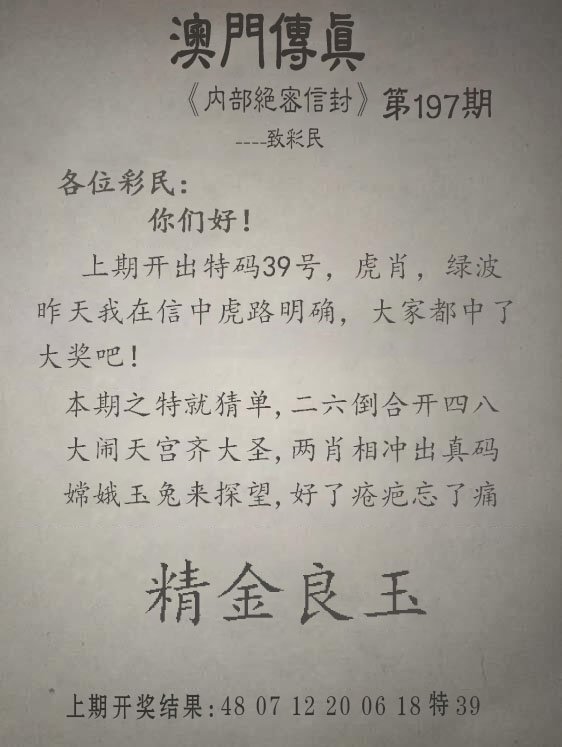 澳門傳真
《内部絕密信封》第197期
----致彩民
各位彩民：
你们好！
上期开出特码39号，虎肖，绿波
昨天我在信中虎路明确，大家都中了
大奖吧！
本期之特就猜单，二六倒合开四八
大闹天宫齐大圣，两肖相冲出真码
嫦娥玉兔来探望，好了疮疤忘了痛
精金良玉
上期开奖结果：48 07 12 20 06 18特39